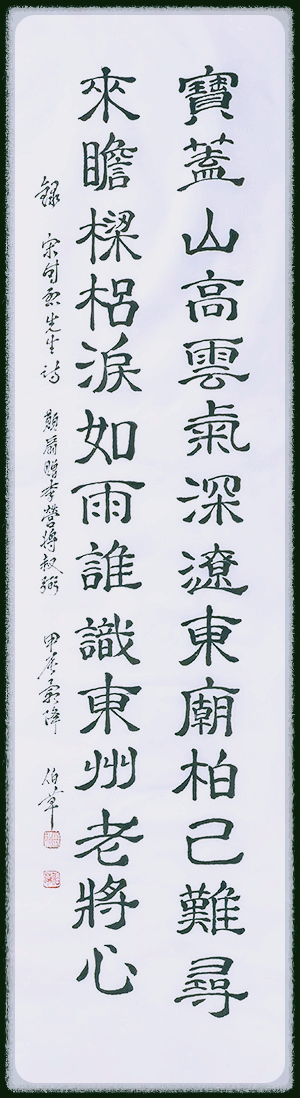 寶蓋山高雲氣深遼東廟柏已難尋
來瞻樑梠淚如雨誰識東州老將心
録 宋時烈先生詩 翁贈李營將叔弼 甲辰霜降 伯